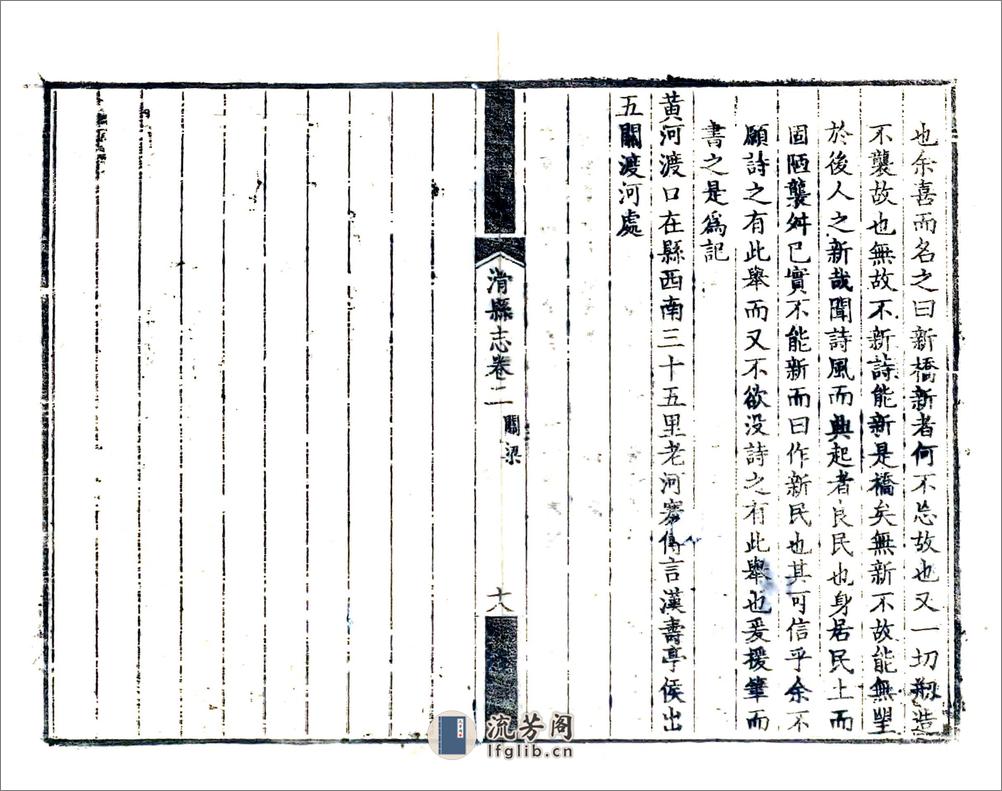 也余喜而名之曰新橋新者何不忘故也又一切剏造
不襲故也無故不新詩能新是橋矣無新不故能無望
於後人之新哉聞詩風而興起者良民也身居民上而
固陋襲舛已實不能新而曰作新民也其可信乎余不
願詩之有此舉而又不欲没詩之有此舉也爰援筆而
書之是爲記
黄河渡口在縣西南三十五里老河寨傳言漢壽亭侯出
五關渡河處
滑縣志卷二
關梁
十八
流芳阁
lfglib.cn